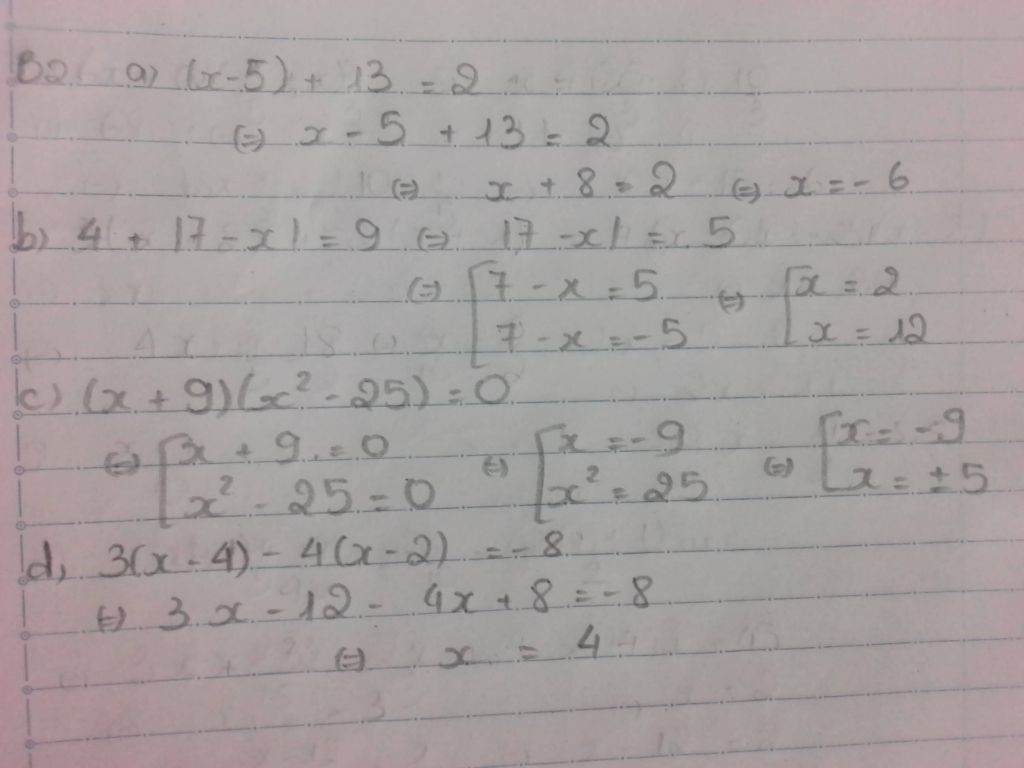 B2. a) (x-5) + 13 = 2
(=) x - 5 + 13 = 2
(=) x + 8 = 2 (=) x = - 6
b) 4 + |7 - x| = 9 (=) |7 - x| = 5
(=) [7 - x = 5 (=) [x = 2
7 - x = - 5 x = 12
c) (x + 9)(x² - 25) = 0
(=) [x + 9 = 0 (=) [x = - 9 (=) [x = - 9
x² - 25 = 0 x² = 25 x = ± 5
d, 3(x - 4) - 4(x - 2) = - 8
(=) 3x - 12 - 4x + 8 = - 8
(=) x = 4